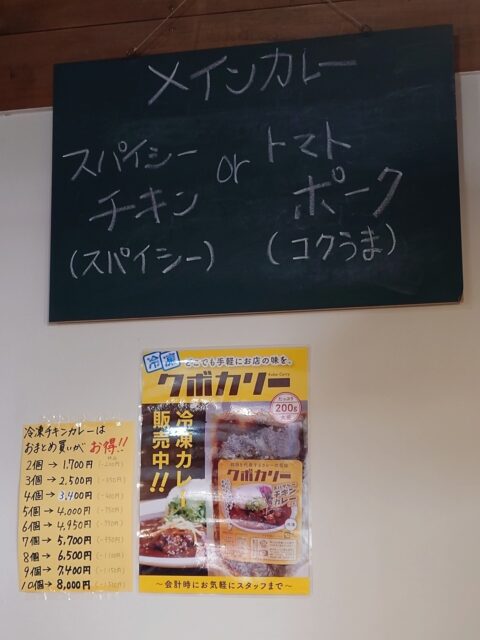 メインカレー
スパイシー or トマト
チキン ポーク
(スパイシー) (コクうま)
冷凍 どこでも手軽にお店の味を、
クボカリー
Kubo Curry
たっぷり
200g
冷凍カレー
販売中!!
クボカリー
チキン
カレー
〜会計時にお気軽にスタッフまで〜
冷凍チキンカレーは
おまとめ買いが、お得!!
2個→1,700円(-200円)
3個→2,500円(-350円)
4個→3,400円(-400円)
5個→4,000円(-750円)
6個→4,950円(-750円)
7個→5,700円(-950円)
8個→6,500円(-1100円)
9個→7,400円(-1150円)
10個→8,000円(-1500円)